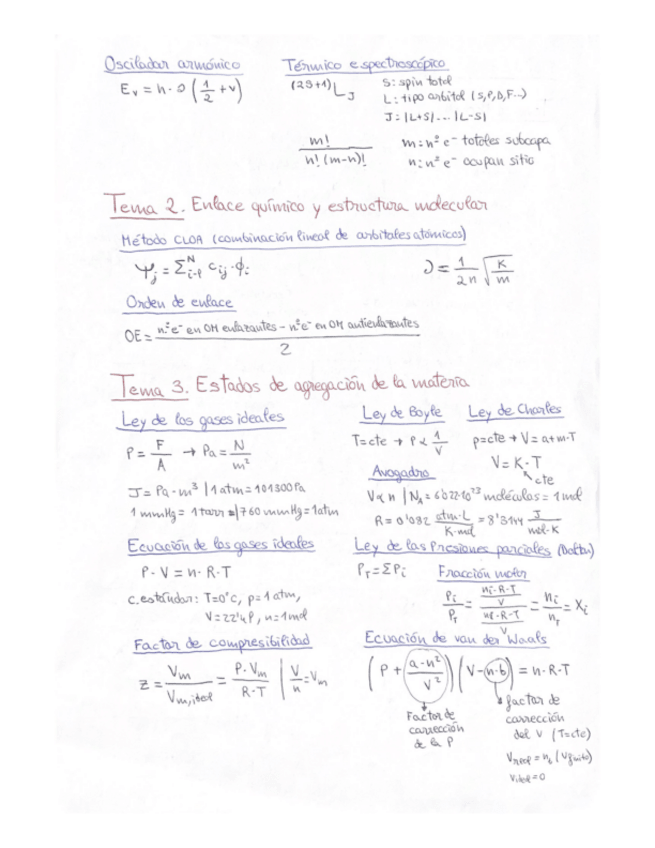 Oscilador armónico
E_v = h · ν (1/2 + v)
Término espectroscópico
(2S+1) L_J
S: spin total
L: tipo orbital (S, P, D, F...)
J = |L+S| ... |L-S|
m! / n! (m-n)!
m: nº e⁻ totales subcapa
n: nº e⁻ ocupan sitio
Tema 2. Enlace químico y estructura molecular
Método CLOA (combinación lineal de orbitales atómicos)
Ψ_j = Σ^N_{i=1} c_ij · ϕ_i
ν = 1/2π √(K/m)
Orden de enlace
OE = nº e⁻ en OM enlazantes - nº e⁻ en OM antienlazantes / 2
Tema 3. Estados de agregación de la materia
Ley de los gases ideales
P = F/A → Pa = N/m²
J = Pa · m³ | 1 atm = 101300 Pa
1 mmHg = 1 torr = | 760 mmHg = 1 atm
Ley de Boyle
T = cte → P ∝ 1/V
Ley de Charles
p = cte → V = a + m · T
V = K · T
cte
Avogadro
V ∝ n | N_A = 6'022·10²³ moléculas = 1 mol
R = 0'082 atm·L / K·mol = 8'3144 J / mol·K
Ecuación de los gases ideales
P · V = n · R · T
c. estándar: T = 0°C, p = 1 atm,
V = 22'4 l, n = 1 mol
Ley de las Presiones parciales (Dalton)
P_T = ΣP_i
Fracción molar
P_i / P_T = (n_i · R · T / V) / (n_T · R · T / V) = n_i / n_T = X_i
Factor de compresibilidad
Z = V_m / V_m,ideal = P · V_m / R · T | V/n = V_m
Ecuación de van der Waals
(P + a · n² / V²) (V - n · b) = n · R · T
Factor de
corrección
de la P
factor de
corrección
del V (T = cte)
V_real = n_b (V finito)
V ideal = 0